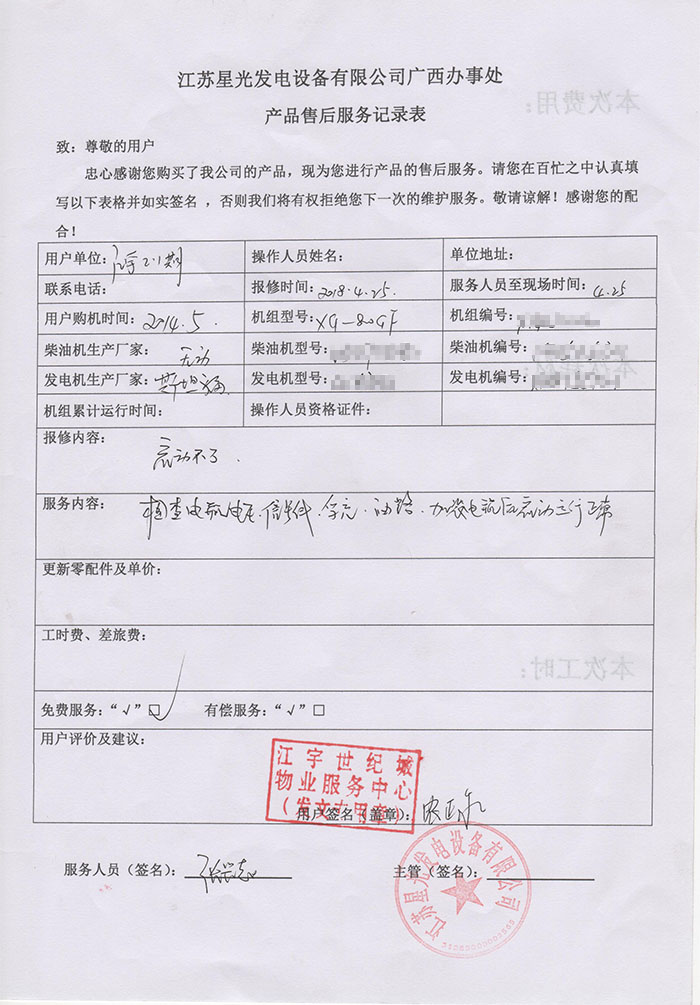 江苏星光发电设备有限公司广西办事处
产品售后服务记录表
致：尊敬的用户
忠心感谢您购买了我公司的产品，现为您进行产品的售后服务。请您在百忙之中认真填
写以下表格并如实签名 ，否则我们将有权拒绝您下一次的维护服务。敬请谅解！感谢您的配
合！
用户单位： 操作人员姓名： 单位地址：
联系电话： 报修时间：2018.4.25. 服务人员至现场时间：4.25
用户购机时间：2014.5. 机组型号：XG-80GF 机组编号：
柴油机生产厂家：无动 柴油机型号： 柴油机编号：
发电机生产厂家：斯坦福 发电机型号： 发电机编号：
机组累计运行时间： 操作人员资格证件：
报修内容：
启动不了.
服务内容：
检查电瓶电压.信号线.  .油路.加装电瓶后启动运行正常
更新零配件及单价：
工时费、差旅费：
免费服务：“√”□ √ 有偿服务：“√”□
用户评价及建议：
江宇世纪城
物业服务中心
（发文专用章）
用户签名（盖章）：
服务人员（签名）： 主管（签名）：
江苏星光发电设备有限公司
本次费用：
本次工时：